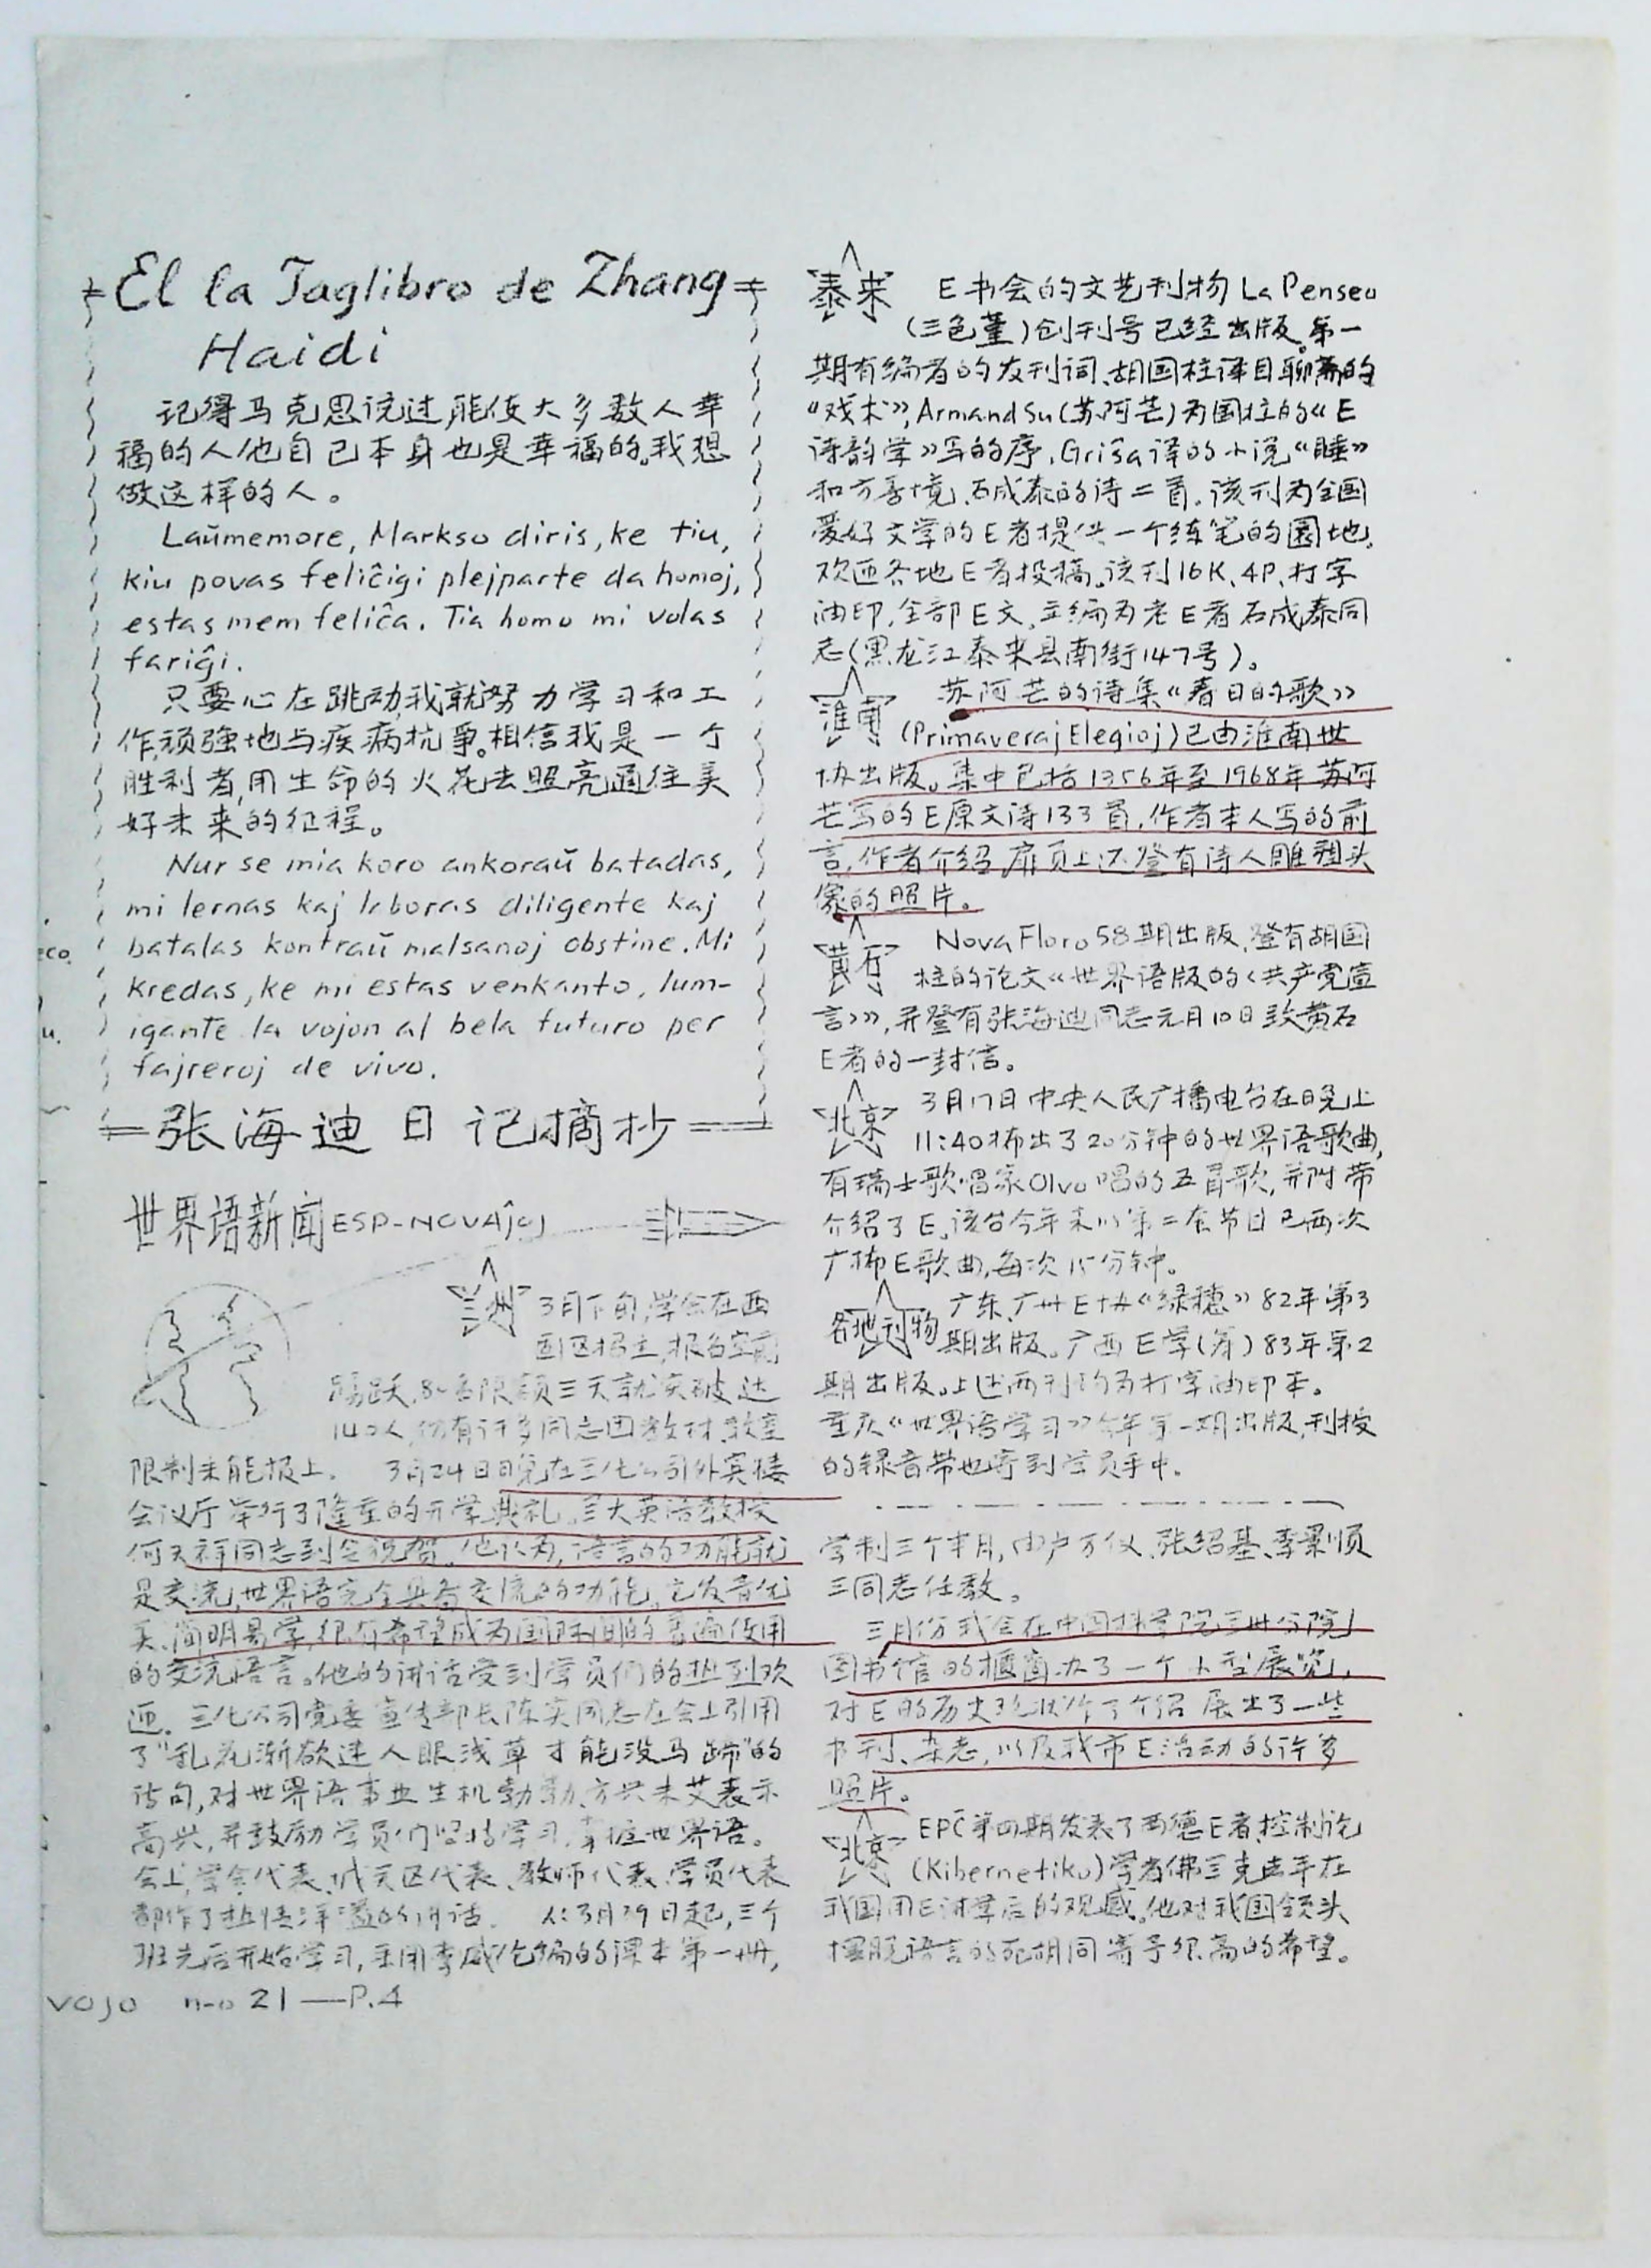 El la Taglibro de Zhang
Haidi
记得马克思说过,能使大多数人幸
福的人,他自己本身也是幸福的。我想
做这样的人。
Laŭmemore, Markso diris, ke tiu,
kiu povas feliĉigi plejparte da homoj,
estas mem feliĉa. Tia homo mi volas
fariĝi.
只要心在跳动,我就努力学习和工
作,顽强地与疾病抗争。相信我是一个
胜利者,用生命的火花去照亮通往美
好未来的征程。
Nur se mia koro ankoraŭ batadas,
mi lernas kaj laboras diligente kaj
batalas kontraŭ malsanoj obstine. Mi
kredas, ke mi estas venkanto, lum-
igante la vojon al bela futuro per
fajreroj de vivo.
张海迪日记摘抄
世界语新闻 ESP-NOVAĴOJ
兰州 3月下旬,学会在西
固区招生,报名空前
踊跃,80名限额三天就突破,达
140人,仍有许多同志因教材、教室
限制未能报上。 3月24日晚在兰化公司外宾楼
会议厅举行了隆重的开学典礼。兰大英语教授
何天祥同志到会祝贺。他认为,语言的功能就
是交流,世界语完全具备交流的功能,它发音优
美,简明易学,很有希望成为国际间的普遍使用
的交流语言。他的讲话受到学员们的热烈欢
迎。兰化公司党委宣传部长陈实同志在会上引用
了"乱花渐欲迷人眼,浅草才能没马蹄"的
诗句,对世界语事业生机勃勃、方兴未艾表示
高兴,并鼓励学员们坚持学习,掌握世界语。
会上,学会代表、城关区代表、教师代表、学员代表
都作了热情洋溢的讲话。 从3月29日起,三个
班先后开始学习,采用李威伦编的课本第一册,
VOJO n-o 21 —P.4
泰来 E书会的文艺刊物La Penseo
(三色堇)创刊号已经出版。第一
期有编者的发刊词、胡国柱译自聊斋的
《戏术》,Armand Su(苏阿芒)为国柱的《E
诗韵学》写的序,Griŝa译的小说《睡》
和方善境、石成泰的诗二首。该刊为全国
爱好文学的E者提供一个练笔的园地,
欢迎各地E者投稿。该刊16K、4P、打字
油印,全部E文,主编为老E者石成泰同
志(黑龙江泰来县南街147号)。
淮南 苏阿芒的诗集《春日的歌》
(Primaveraj Elegioj)已由淮南世
协出版。集中包括1956年至1968年苏阿
芒写的E原文诗133首,作者本人写的前
言,作者介绍,扉页上还登有诗人雕塑头
像的照片。
黄石 Nova Floro 58期出版,登有胡国
柱的论文《世界语版的〈共产党宣
言〉》,并登有张海迪同志元月10日致黄石
E者的一封信。
北京 3月17日中央人民广播电台在晚上
11:40播出了20分钟的世界语歌曲,
有瑞士歌唱家Olvo唱的五首歌,并附带
介绍了E。该台今年来以第二套节目已两次
广播E歌曲,每次15分钟。
各地刊物 广东、广州E协《绿穗》82年第3
期出版。广西E学(筹)83年第2
期出版。上述两刊均为打字油印本。
重庆《世界语学习》今年第一期出版,刊授
的录音带也寄到学员手中。
学制三个半月,由卢万仪、张绍基、李景顺
三同志任教。
三月份我会在中国科学院兰州分院
图书馆的橱窗办了一个小型展览,
对E的历史现状作了介绍,展出了一些
书刊、杂志,以及我市E活动的许多
照片。
北京 EPĈ第四期发表了西德E者,控制论
(Kibernetiko)学者佛兰克去年在
我国用E讲学后的观感。他对我国领头
摆脱语言的死胡同寄予很高的希望。